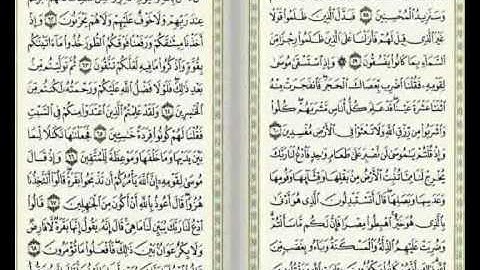 وَسَنَزِيدُ ٱلْمُحْسِنِينَ ٥٨ فَبَدَّلَ ٱلَّذِينَ ظَلَمُوا۟ قَوْلًا
غَيْرَ ٱلَّذِى قِيلَ لَهُمْ فَأَنزَلْنَا عَلَى ٱلَّذِينَ ظَلَمُوا۟ رِجْزًا مِّنَ
ٱلسَّمَآءِ بِمَا كَانُوا۟ يَفْسُقُونَ ٥٩ ۞ وَإِذِ ٱسْتَسْقَىٰ مُوسَىٰ
لِقَوْمِهِۦ فَقُلْنَا ٱضْرِب بِّعَصَاكَ ٱلْحَجَرَ فَٱنفَجَرَتْ مِنْهُ
ٱثْنَتَا عَشْرَةَ عَيْنًا قَدْ عَلِمَ كُلُّ أُنَاسٍ مَّشْرَبَهُمْ كُلُوا۟
وَٱشْرَبُوا۟ مِن رِّزْقِ ٱللَّهِ وَلَا تَعْثَوْا۟ فِى ٱلْأَرْضِ مُفْسِدِينَ ٦٠
وَإِذْ قُلْتُمْ يَٰمُوسَىٰ لَن نَّصْبِرَ عَلَىٰ طَعَامٍ وَٰحِدٍ فَٱدْعُ لَنَا رَبَّكَ
يُخْرِجْ لَنَا مِمَّا تُنۢبِتُ ٱلْأَرْضُ مِنۢ بَقْلِهَا وَقِثَّآئِهَا وَفُومِهَا
وَعَدَسِهَا وَبَصَلِهَا قَالَ أَتَسْتَبْدِلُونَ ٱلَّذِى هُوَ أَدْنَىٰ
بِٱلَّذِى هُوَ خَيْرٌ ٱهْبِطُوا۟ مِصْرًا فَإِنَّ لَكُم مَّا سَأَلْتُمْ
وَضُرِبَتْ عَلَيْهِمُ ٱلذِّلَّةُ وَٱلْمَسْكَنَةُ وَبَآءُو بِغَضَبٍ مِّنَ
عِندَ رَبِّهِمْ وَلَا خَوْفٌ عَلَيْهِمْ وَلَا هُمْ يَحْزَنُونَ ٦٢ وَإِذْ
أَخَذْنَا مِيثَٰقَكُمْ وَرَفَعْنَا فَوْقَكُمُ ٱلطُّورَ خُذُوا۟ مَآ ءَاتَيْنَٰكُم
بِقُوَّةٍ وَٱذْكُرُوا۟ مَا فِيهِ لَعَلَّكُمْ تَتَّقُونَ ٦٣ ثُمَّ تَوَلَّيْتُم مِّنۢ
بَعْدِ ذَٰلِكَ فَلَوْلَا فَضْلُ ٱللَّهِ عَلَيْكُمْ وَرَحْمَتُهُۥ لَكُنتُم مِّنَ
ٱلْخَٰسِرِينَ ٦٤ وَلَقَدْ عَلِمْتُمُ ٱلَّذِينَ ٱعْتَدَوْا۟ مِنكُمْ فِى ٱلسَّبْتِ
فَقُلْنَا لَهُمْ كُونُوا۟ قِرَدَةً خَٰسِـِٔينَ ٦٥ فَجَعَلْنَٰهَا نَكَٰلًا لِّمَا
بَيْنَ يَدَيْهَا وَمَا خَلْفَهَا وَمَوْعِظَةً لِّلْمُتَّقِينَ ٦٦ وَإِذْ قَالَ
مُوسَىٰ لِقَوْمِهِۦٓ إِنَّ ٱللَّهَ يَأْمُرُكُمْ أَن تَذْبَحُوا۟ بَقَرَةً قَالُوٓا۟ أَتَتَّخِذُنَا
هُزُوًا قَالَ أَعُوذُ بِٱللَّهِ أَنْ أَكُونَ مِنَ ٱلْجَٰهِلِينَ ٦٧ قَالُوا۟
ٱدْعُ لَنَا رَبَّكَ يُبَيِّن لَّنَا مَا هِىَ قَالَ إِنَّهُۥ يَقُولُ إِنَّهَا بَقَرَةٌ لَّا فَارِضٌ
وَلَا بِكْرٌ عَوَانٌۢ بَيْنَ ذَٰلِكَ فَٱفْعَلُوا۟ مَا تُؤْمَرُونَ ٦٨